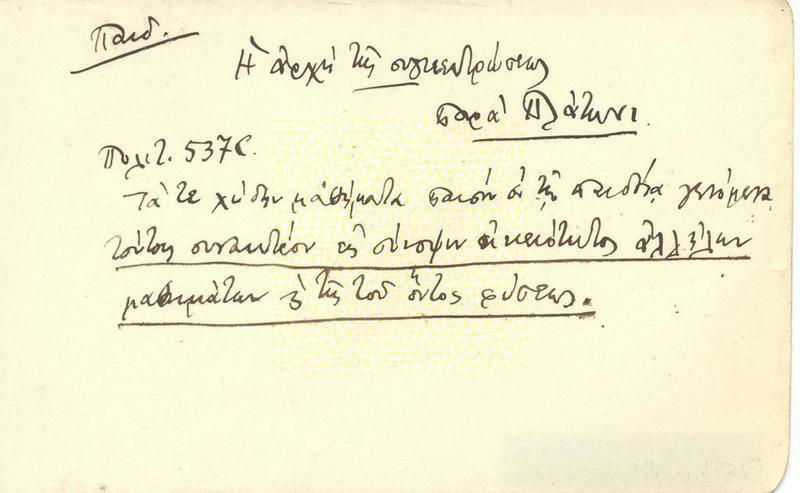 Παιδ.
Ἡ ἀρχὴ τῆς συγκεντρώσεως
παρὰ Πλάτωνι.
Πολιτ. 537C.
Τά τε χύδην μαθήματα παισὶν ἐν τῇ παιδείᾳ γενόμενα
τούτοις συνακτέον εἰς σύνοψιν οἰκειότητος ἀλλήλων
μαθημάτων καὶ τῆς τοῦ ὄντος φύσεως.